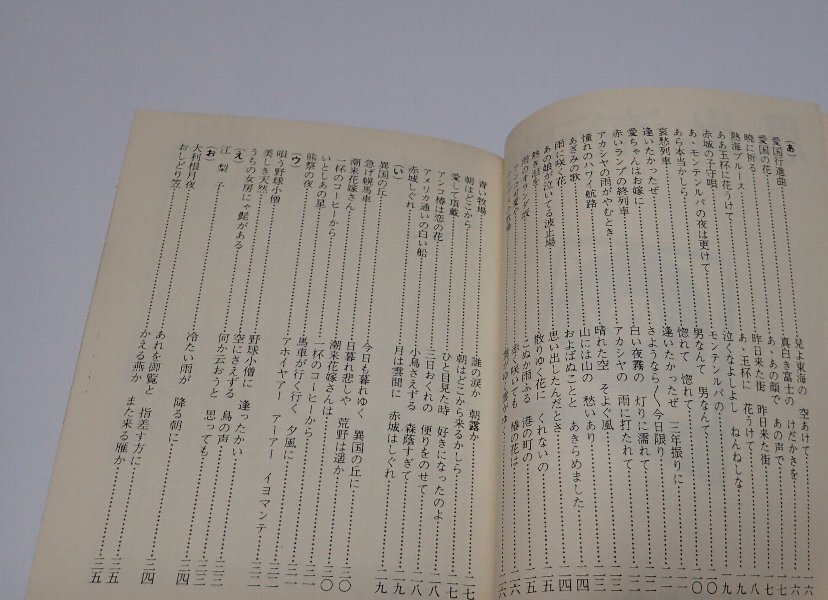 (あ)
愛国行進曲 見よ東海の 空あけて 六
愛国の花 真白き富士の けだかさを 六
暁に祈る あゝあの顔で あの声で 七
熱海ブルース 昨日来た街 昨日来た街 八
ああ玉杯に花うけて あゝ玉杯に 花うけて 九
赤城の子守唄 泣くなよしよし ねんねしな 九
あゝモンテンルパの夜は更けて モンテンルパの 一〇
あら本当かしら 男なんて 男なんて 一〇
哀愁列車 惚れて 惚れて 一一
逢いたかったぜ 逢いたかったぜ 三年振りに 一一
愛ちゃんはお嫁に さようなら 今日限り 一二
赤いランプの終列車 白い夜霧の 灯りに濡れて 一二
アカシヤの雨がやむとき アカシヤの 雨に打たれて 一三
憧れのハワイ航路 晴れた空 そよぐ風 一三
あざみの歌 山には山の 愁いあり 一四
雨に咲く花 およばぬことと あきらめました 一四
あの娘が泣いてる波止場 思い出したんだとさ 一五
熱き泪を 散りゆく花に くれないの 一五
雨のオランダ坂 こぬか雨ふる 港の町の 一六
青い牧場 誰の涙か 朝露か 一七
朝はどこから 朝はどこから来るかしら 一七
愛して頂戴 ひと目見た時 好きになったのよ 一八
アンコ椿は恋の花 三日おくれの 便りをのせて 一八
アメリカ通いの白い船 小鳥さえずる 森蔭すぎて 一九
赤城しぐれ 月は雲間に 赤城はしぐれ 一九
(い)
異国の丘 今日も暮れゆく 異国の丘に 二〇
急げ幌馬車 日暮れ悲しや 荒野は遥か 二〇
潮来花嫁さん 潮来花嫁さんは
一杯のコーヒーから 一杯のコーヒーから
いとしあの星 馬車が行く行く 夕風に
(ウ)
熊祭の夜 アホイヤアー アーアー イヨマンテ
唄う野球小僧 野球小僧に 逢ったかい
美しき天然 空にさえずる 鳥の声
うちの女房にゃ髭がある 何か云おうと 思っても
(え)
江梨子 冷たい雨が 降る朝に
(お)
大利根月夜 あれを御覧と 指差す方に
おしどり笠 かえる燕か また来る雁か